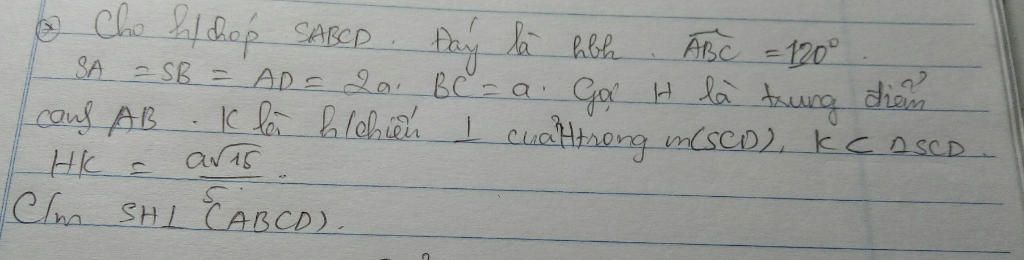 ⊛ Cho h/chóp SABCD. Đáy là hbh. ABC = 120°.
SA = SB = AD = 2a. BC = a. Gọi H là trung điểm
cạnh AB. K là h/chiếu ⊥ của H trong m(SCD), K ⊂ ΔSCD.
HK = a√15/5.
C/m SH ⊥ (ABCD).